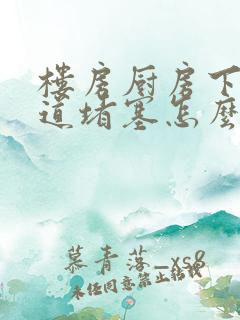 樓房厨房下
道堵塞怎麽
慕青落_xs8
未经同意禁止转载